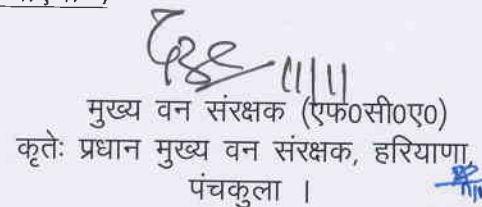 11/11
मुख्य वन संरक्षक (एफ0सी0ए0)
कृतेः प्रधान मुख्य वन संरक्षक, हरियाणा,
पंचकुला ।